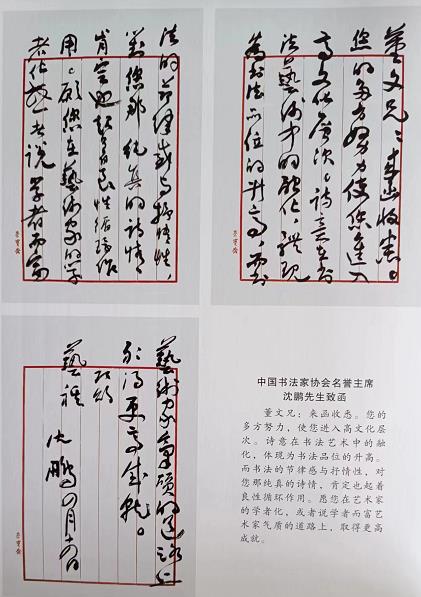 董文兄：来函收悉。
您的多方努力，使您進入
高文化层次。诗意在书
法藝術中的融化，體现
为书法品位的升高，而书
法的节律感与抒情性，
对您那纯真的诗情，
肯定也起着良性循环作
用。愿您在藝術家的学
者化，或者说学者而富
藝術家氣質的道路上
取得更高成就。
即颂
藝祺
沈鹏
中国书法家协会名誉主席
沈鹏先生致函
董文兄：来函收悉。您的
多方努力，使您进入高文化层
次。诗意在书法艺术中的融
化，体现为书法品位的升高。
而书法的节律感与抒情性，对
您那纯真的诗情，肯定也起着
良性循环作用。愿您在艺术家
的学者化，或者说学者而富艺
术家气质的道路上，取得更高
成就。